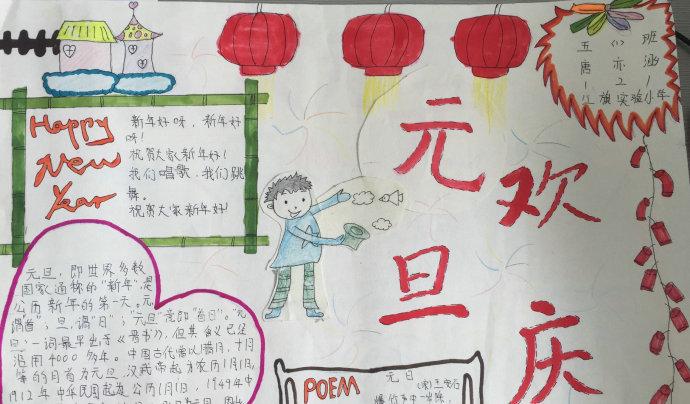 Happy
New
Year
新年好呀，新年好
呀！
祝贺大家新年好！
我们唱歌，我们跳
舞。
祝贺大家新年好！
元旦
欢庆
五（2）班
唐亦涵
八旗实验小学
元旦，即世界多数
国家通称的"新年"，是
公历新年的第一天。元，
谓"首"；旦，谓"日"；"元旦"意即"首日"。"元
旦"一词最早出于《晋书》，但其含义已经
沿用4000多年。中国古代曾以腊月、十月
等的月首为元旦，汉武帝起为农历1月1日，
1912年中华民国起为公历1月1日，1949年中
POEM
元日
（宋）王安石
爆竹声中一岁除，